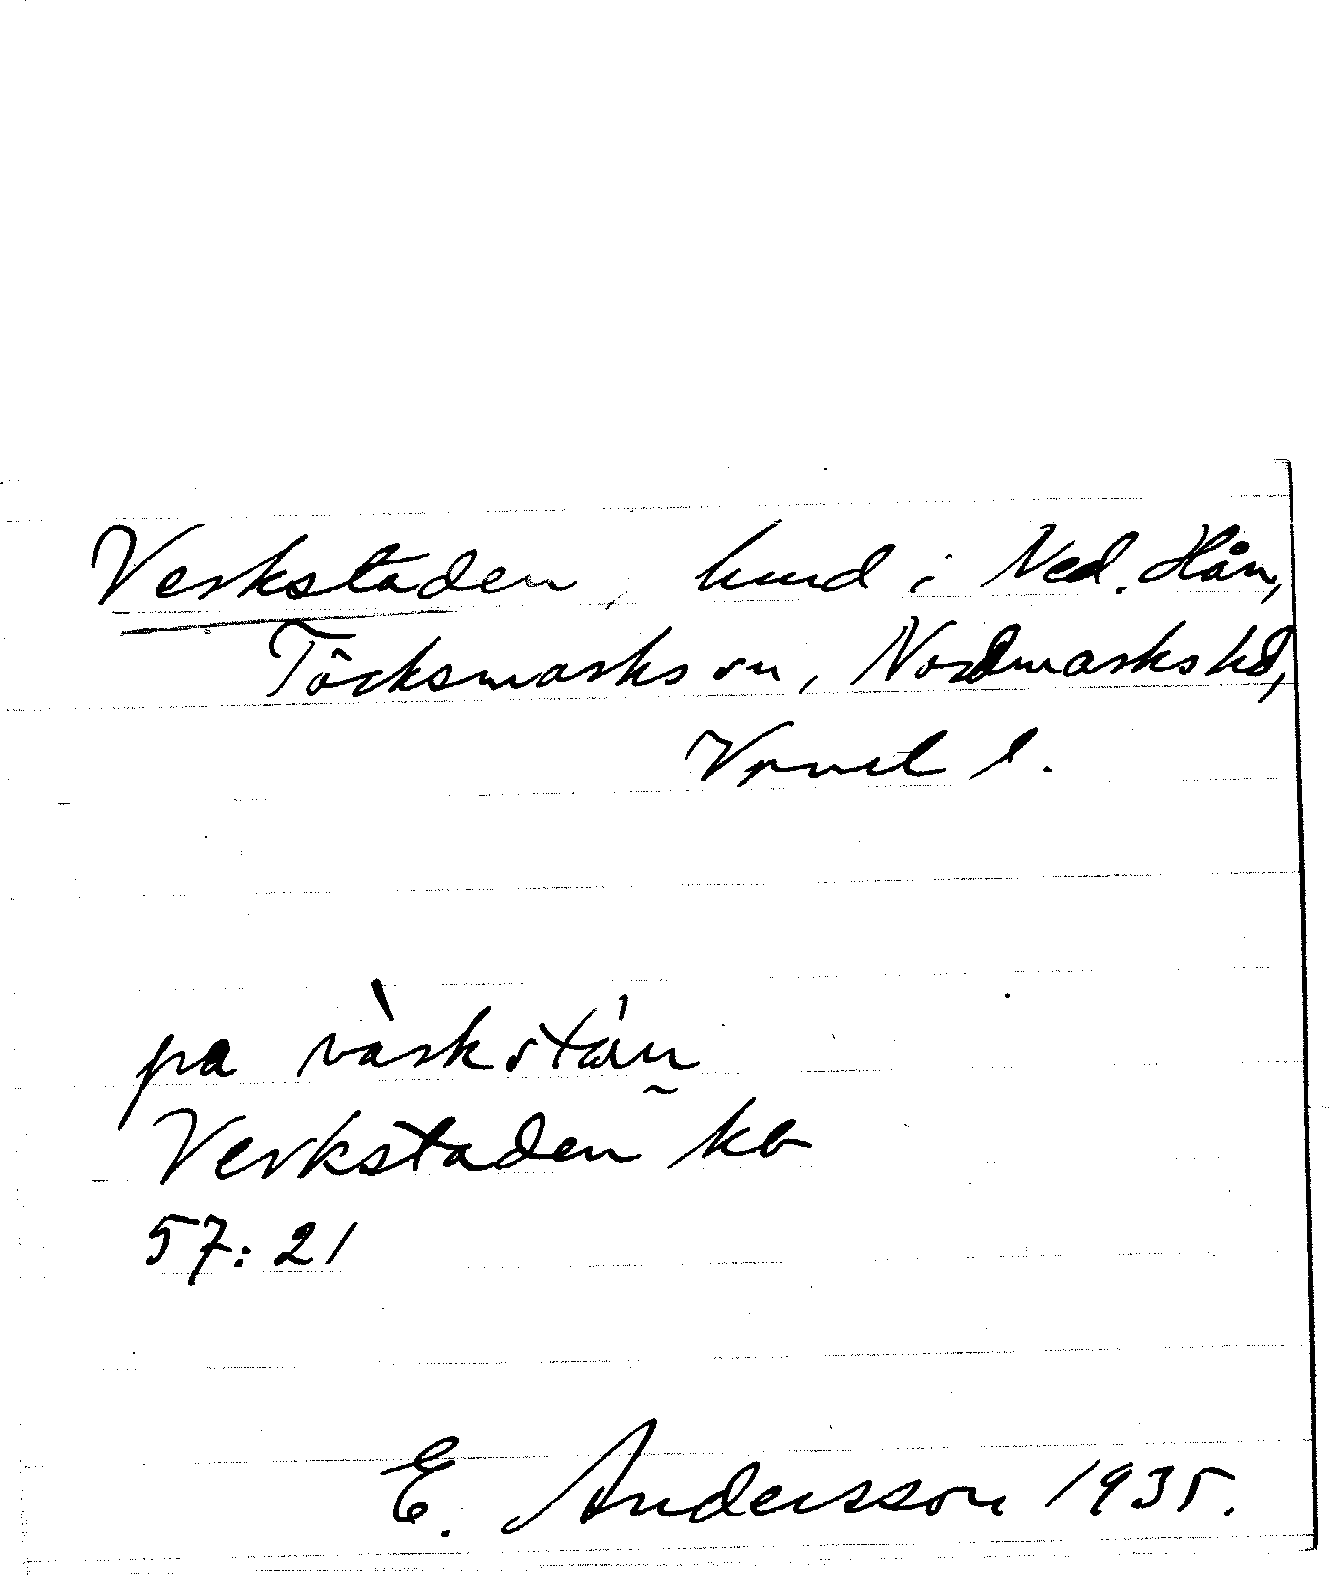 Verkstaden, lund i Ned. Hån,
Töcksmarks sn, Nordmarks hd,
Vrml l.
pa värkstán
Verkstaden kb
57:21
E. Andersson 1935.